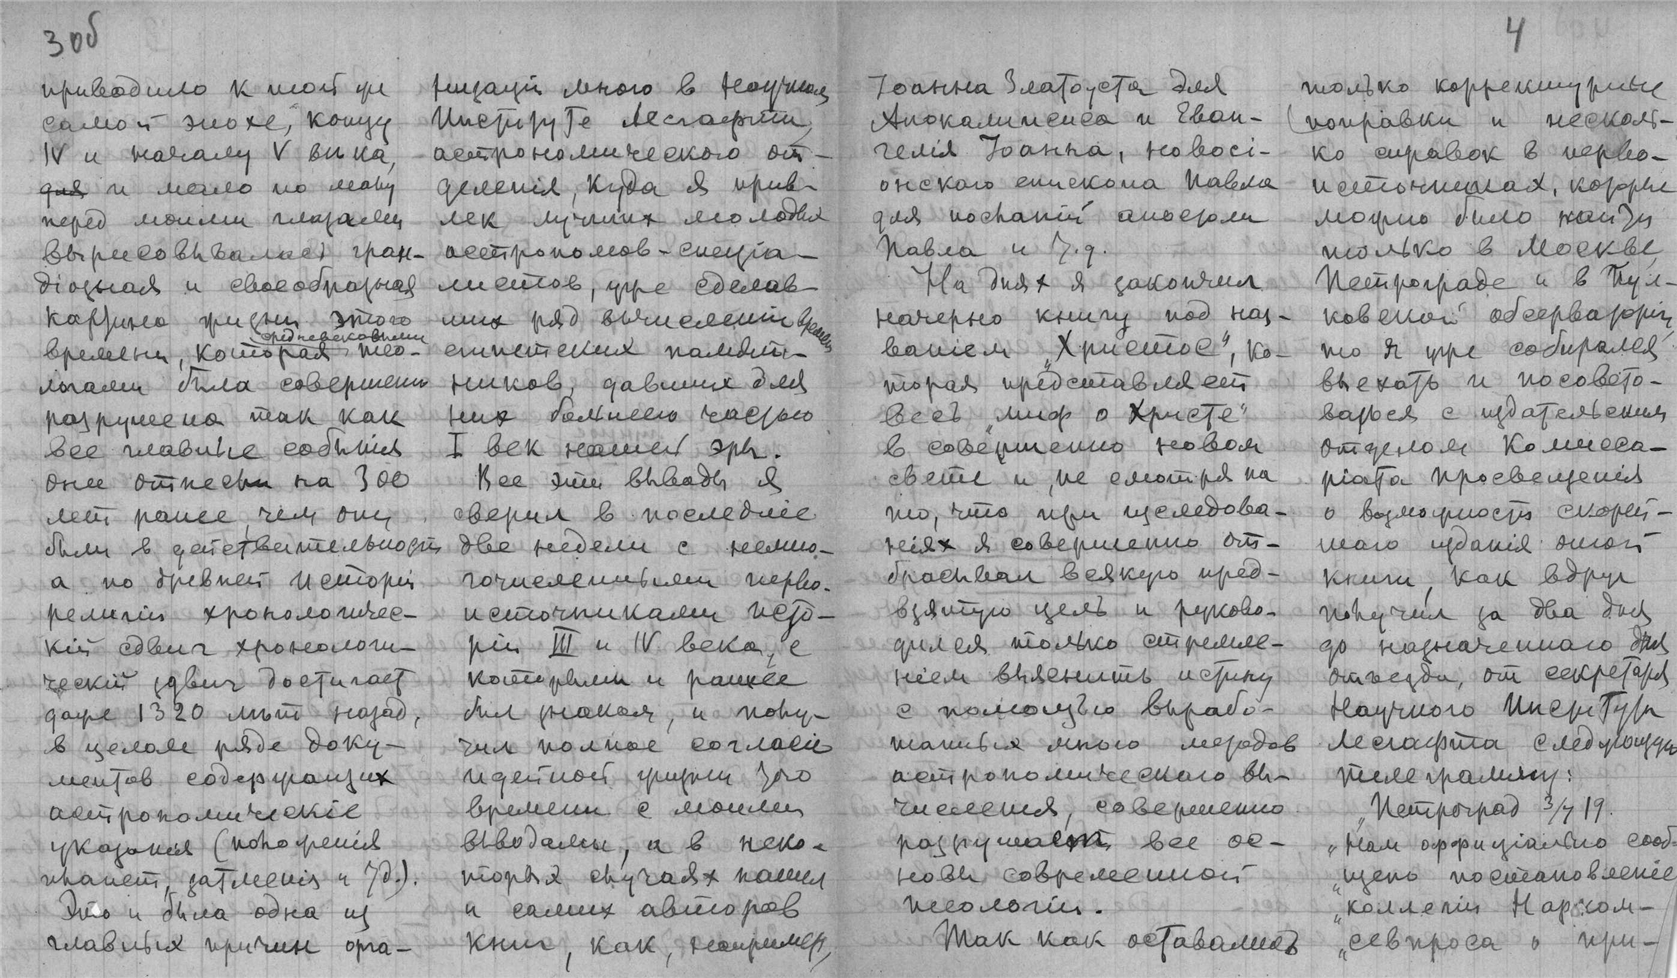 3 об
приводило к той же
самой эпохе, концу
IV и началу V века,
для и мало по малу
перед моими глазами
вырисовывалась гран-
діозная и своеобразная
картина жизни этого
средневековыми
времени, которая тео-
логами была совершенно
разрушена так как
все главные событія
они отнесли на 300
лет ранее, чем они
были в действительности
а по древней исторіи
религіи хронологичес-
кій сдвиг хронологи-
ческій сдвиг достигает
даже 1320 лет назад,
в целом ряде доку-
ментов содержащих
астрономическіе
указанія (положенія
планет, затменія и т.д.).
Это и была одна из
главных причин орга-
низаціи мною в Научном
Институте Лесгафта,
астрономического от-
деленія, куда я прив-
лек лучших молодых
астрономов-спеціа-
листов, уже сделав-
ших ряд вычисленій времен
египетских памят-
ников, давших для
них большею частью
I век нашей эры.
Все эти выводы я
сверил в последніе
две недели с немно-
гочисленными перво-
источниками исто-
ріи III и IV века, с
которыми и раньше
был знаком, и полу-
чил полное согласіе
идейной жизни того
времени с моими
выводами, а в неко-
торых случаях нашел
и самих авторов
книг, как, например,
4
Іоанна Златоуста для
Апокалипсиса и Еван-
гелія Іоанна, новосі-
онскаго епископа Павла
для посланій апостола
Павла и т.д.
На днях я закончил
начерно книгу под наз-
ваніем „Христос", ко-
торая представляет
весь „миф о Христе"
в совершенно новом
свете и, не смотря на
то, что при изследова-
ніях я совершенно от-
брасывал всякую пред-
взятую цель и руково-
дился только стремле-
ніем выяснить истину
с помощью вырабо-
танных мною методов
астрономическаго вы-
численія, совершенно
разрушает все ос-
новы современной
теологіи.
Так как оставались
только корректурные
поправки и несколь-
ко справок в перво-
источниках, которые
можно было найти
только в Москве,
Петрограде и в Пул-
ковской обсерваторіи
то я уже собирался
выехать и посовето-
ваться с издательским
отделом Комисса-
ріата Просвещенія
о возможности скорей-
шаго изданія этой
книги, как вдруг
получил за два дня
до назначеннаго дня
отъезда, от секретаря
Научного Института
Лесгафта следующую
телеграмму:
„Петроград 3/7 19.
„Нам оффиціально сооб-
„щено постановленіе
„коллегіи Нарком-
„севпроса о при-